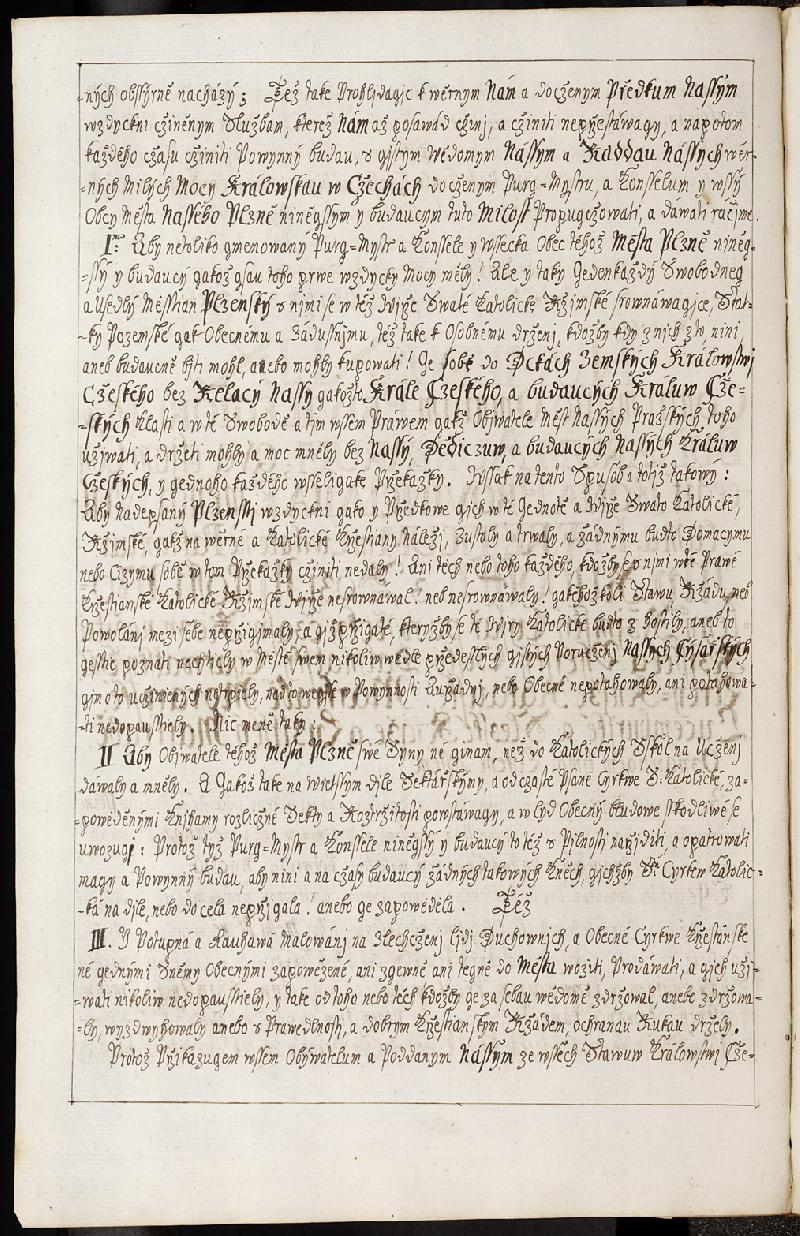 -ných obssyrně nacházý; Též take Prohlidagic k wěrnym Nám a dočzenym Předkum Nassým
wzdyckni cžiněnym Službam, kterež Nám až posawád cžinj, a cžiniti nepržestáwagy, a napotom
každého cžasu cžiniti Powynný budau, s gistym Wědomym Nássým a Raddau Nássých wěr-
-ných Milých Mocy Králowskau w Cžechách dočzenym Purg-Mystru, a Konsselum y wssý
Obcy Města Nasseho Plzně niněgssym y budaucym tuto Milost Propugcžowati, a dáwati račzjme.
I.mo Aby netoliko gmenowaný Purg-Mystr a Konssele y wssecka Obec tehož Města Plzně niněg-
-ssý y budaucý gakož gsau toho prwe wzdycky Mocy měly! Ale y taky Gedenkaždý Swobodneg
a Usedlý Měsstian Plzenský s njmi se w též Wjře Swaté Katolické Ržjmské srownáwagjce, Stat-
-ky Pozemské gak Obecnému a Zádussnjmu, též take k Osobnému drženj, kdožby kdy z nich to, nini,
aneb budaucně býti mohl, anebo mohly kupowati! Ge sobě do Dckách Zemských Králowstwj
Cžeského bez Relacý Nassý gakožto Krále Cžeského, a budaucých Králuw Cže-
-ských klasti a w té Swobodě a tjm wssem Práwem gako Obýwatele Měst Nassých Pražských toho
užjwati, a držeti mohly a moc mněly bez Nassý, Dědiczuw, a budaucých Nassých Králuw
Cžeských, y gednoho každého wsseligaké Pržekažky. Wssak na tento Spusob a totiž takowý:
Aby nadepsaný Plzenssti wzdyckni gako y Pržedkowe gich w té Gednotě a Wjře Swato Katolické,
Ržjmské, gakž na wěrné a Katolické Kržestiany náležj, Zustaly a trwaly, a žádnýmu budto Domacymu
nebo Cizymu sobě w tom Pržekažky cžiniti nedaly! Ani těch nebo toho každého kdožby se s njmi w té Prawé
Kržestianské Katolické Ržjmské Wjře nesrownáwal! neb nesrownáwaly! gakéhožkoli Stawu Ržádu neb
Powolánj mezi sebe neprzigjmaly, a giž pržigaté, kteryžby se té Wjry Katolické budto z hostily, aneb to
gesstie poznati nechtiely w Městě swem nikoliw wedle pržedesslých gistých Porucženj Nassých Cysařských
gjm o to ucžiněných netrpiely, nadto wegsse w Powynnosti Auřadnj, nebo Obecné nepotahowaly, ani potahowa-
-ti nedopausstiely. Nic méně taky:
II Aby Obýwatele tehož Města Plzně swe Syny ne ginam, než do Katolických Sskol na Ucženj
dáwaly a mněly. A Gakož take na wietssým djle Sektářskými, a od cžasté Psané Cyrkwe S: Katolické, za-
-powěděnými Knjhamy rozlicžné Sekty a Roztržitosti powstáwagy, a w lyd Obecný bludowe sskodliwé se
uwozugi: Protož týž Purg-Mystr a Konssele niněgssý y budaucý to též s Pjlnosti nagiditi, a opatrowati
magy a Powynný budau, aby nini a na cžasy budaucý žádných takowých Kněh, gichžby S.tá Cyrkew Katolic-
-ká na djle, nebo do cela nepržigala! anebo ge zapowěděla. Též
III. Y Potupná a Rauhawá Malowánj na Zlehcženj lidj Duchownjch, a Obecné Cyrkwe Kržestánske
né gednými Sněmy Obecnými zapowězené, ani zgewně ani tegně do Města woziti, Prodáwati, a gich užj-
-wati nikoliw nedopausstiely, y take od toho nebo těch kdožby ge za sebau wědomě zdržowal, anebo zdržowa-
-ly, wyzdwyhowaly anebo s Prawedlnosti, a dobrým Kržestianskym Ržádem, ochranau Rukau držely.
Protož Pržikazugem wssem Obýwatelum a Poddanym Nássým ze wssěch Stawuw Králowstwj Cže-